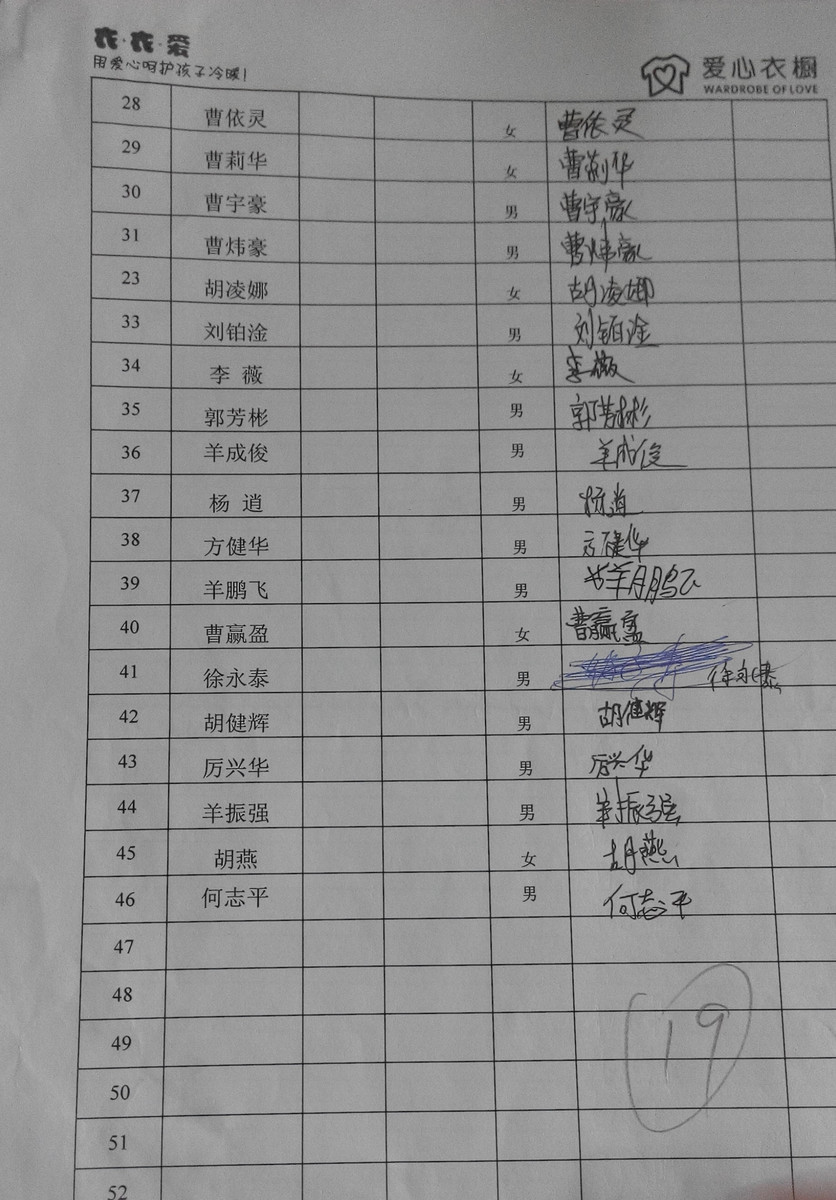 衣·衣·爱
用爱心呵护孩子冷暖!
爱心衣橱
WARDROBE OF LOVE
28 曹依灵 女 曹依灵
29 曹莉华 女 曹莉华
30 曹宇豪 男 曹宇豪
31 曹炜豪 男 曹炜豪
23 胡凌娜 女 胡凌娜
33 刘铂淦 男 刘铂淦
34 李 薇 女 李薇
35 郭芳彬 男 郭芳彬
36 羊成俊 男 羊成俊
37 杨 逍 男 杨逍
38 方健华 男 方健华
39 羊鹏飞 男 羊鹏飞
40 曹赢盈 女 曹赢盈
41 徐永泰 男 徐永泰
42 胡健辉 男 胡健辉
43 厉兴华 男 厉兴华
44 羊振强 男 羊振强
45 胡燕 女 胡燕
46 何志平 男 何志平
47
48
49
19
50
51
52